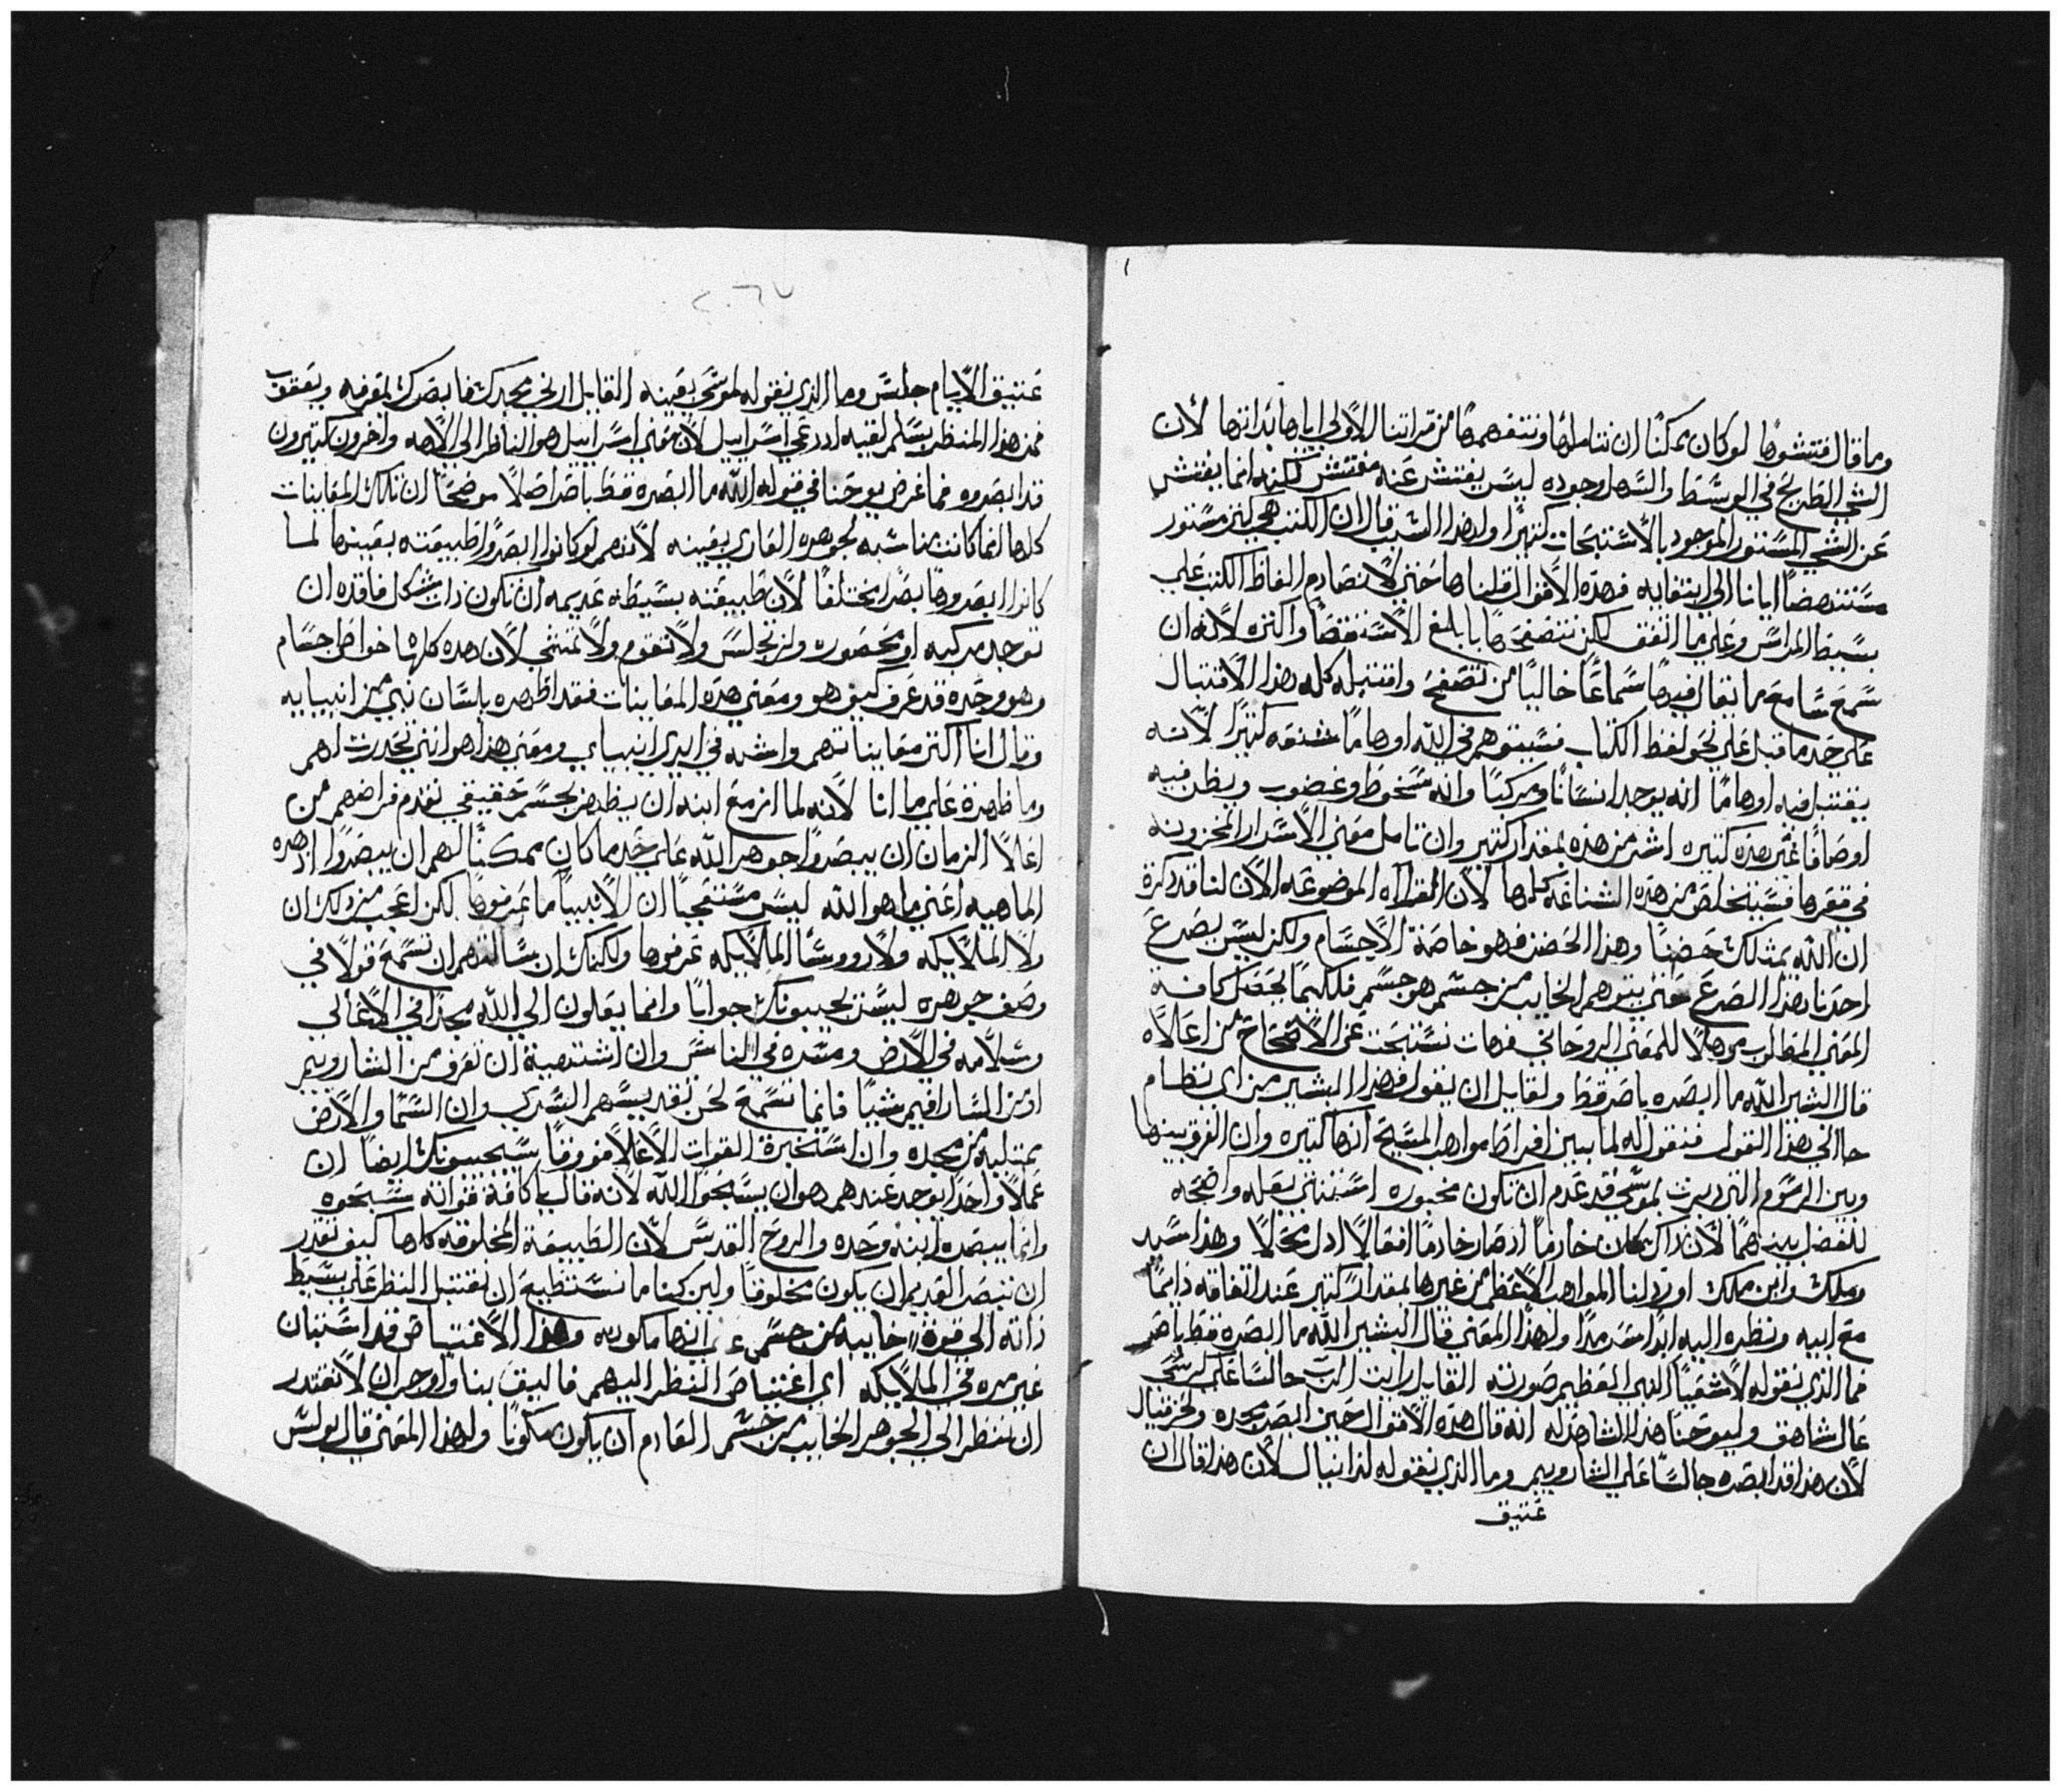 وما قال فتشوها لو كان يمكننا ان نتاملها ونتفهمها من قراتنا الاولي اياها بذاتها لأن
الشي الطريح في الوسط والسهل وجوده ليس يفتش عنه مفتش لكنه انما يفتش
عن الشي المستنور الموجود بالأستبحاث كثيرًا ولهذا السبب قال ان الكتب هي كنز مستور
مستنهضًا ايانا الي ابتغايه فهذه الاقوال قلناها حتي لا نصادم الفاظ الكتب علي
بسيط المداس وعلي ما اتفق لكن نتصفحها بابلغ الاستقصا واكثره لأنه ان
سمع سامع ما يقال فيها سماعًا خاليًا من تصفح واقتبله كله هذا الاقتبال
علي حد ما قبل علي نحو لفظ الكتاب فسيتوهم في الله اوهامًا شنعه كثيرًا لانه
يقتبل فيه اوهامًا انه يوجد انسانًا ومركبًا وانه سخوط وغضوب ويظن فيه
اوصافًا غير هذه كثيره اشر من هذه بمقدار كثير وان تامل معني الاسرار المخزونه
في قعرها فسيتخلص من هذه الشناعه كلها لأن القراآه الموضوعه الان لنا قد ذكرة
ان الله يمتلك حضنًا وهذا الحضن فهو خاصة الاجسام ولكن ليس يصرع
احدنا بهذا الصرع حتي يتوهم الخايب من جسم هو جسم فلكيما نجعل كافة
المعني المطلوب موهلًا للمعني الروحاني فهات نستبحث عن الافتتاح من اعالاه
قال البشير الله ما ابصره باصر قط ولقايل ان يقول فهذا البشير من اي نظام
جا الي هذا القول فنقول له لما بين افراط مواهب المسيح انها كثيره وان الفرق بينها
وبين الرسوم التي دبرت لموسي قد عدم ان تكون محبوره استثني بعله واضحه
للفضل بينهما لأن ذاك كان خادمًا اذ صار خادمًا افعالًا ادل محلًا وهذا سيد
وملك وابن ملك اورد لنا المواهب الاعظم من غيرها بمقدار كثير عند اتفاقه دايمًا
مع ابيه ونظره اليه ابدًا سرمدًا ولهذا المعني قال البشير الله ما ابصره قط باصر
فما الذي نقوله لاشعيا النبي العظيم صوته القايل رايت الرب جالسًا علي كرسي
عال شاهق وليوحنا هذا الشاهد له انه قال هذه الاقوال حين ابصر مجده ولحزقيال
لأن هذا قد ابصره جالسًا علي الشاروبيم وما الذي نقوله لدانيال لأن هذا قال ان
عتيق
٢٠٦٧
عتيق الايام جلس وما الذي نقوله لموسي بعينه القايل ارني مجدك فابصرك بمعرفه ويعقوب
فمن هذا المنظر بسلم لقبه ادعي اسراييل لأن معني اسراييل هو الناظر الي الأله واخرون كثيرون
قد ابصروه فما غرض يوحنا في قوله الله ما ابصره قط باصر اصلًا موضحًا ان تلك المعاينات
كلها انما كانت مناسبه لجوهره العاري بعينه لأنهم لو كانوا ابصروا طبيعته بعينها لما
كانوا ابصروها بصرا مختلفًا لأن طبيعته بسيطه عديمه ان تكون ذات شكل فاقده ان
توجد مركبه او محصوره ولن تجلس ولا تقوم ولا تمشي لأن هذه كلها خواط اجسام
وهو وحده قد عرف كيف هو ومعني هذه المعاينات فقد اظهره بلسان نبي من انبيايه
وقال انا اكثر معايناتهم واشبه في ايدي انبياي ومعني هذا هو انني تحدرت لهم
وما ظهرة علي ما انا لأنه لما ازمع ابنه ان يظهر بجسم حقيقي تقدم فراضهم من
اعلا الزمان ان يبصروا جوهر الله علي حد ما كان ممكنًا لهم ان يبصروا اذ هذه
الماهيه اعني ما هو الله ليس مستعجبًا ان الانبيا ما عرفوها لكن اعجب من ذلك ان
ولا الملايكه ولا رووسا الملايكه عرفوها ولكنك ان سالتهم ان تسمع قولًا في
وصف جوهره ليس يجيبونك جوابًا وانما يعلون الي الله مجدًا في الاعالي
وسلامه في الارض ومسره في الناس وان اشتهيت ان تعرف من الشاروبيم
او من الساروفيم شيًا فانما تسمع لحن تقديسهم السري وان السما والارض
ممتليه من مجده وان استخبرة القوات الاعلا فوزمًا سيجيبونك ايضًا ان
عملًا واحدًا يوجد عندهم هو ان يسبحوا الله لأنه قال يا كافة قواته سبحوه
وانما يبصره ابنه وحده والروح القدس لأن الطبيعة المخلوقه كلها كيف تقدر
ان تبصر القديم ان يكون مخلوقًا ولين كنا ما نستطيع ان نقتبل النظر علي بسيط
ذاته الي قوة خايبه من جسم علي انها مكونه وهذا الاغتياص قد استبان
غير مره في الملايكه اي اغتياص النظر اليهم فاليق بنا واوجب ان لا نقتدر
ان ننظر الي الجوهر الخايب من جسم القادم ان يكون مكونًا ولهذا المعني قال بولس